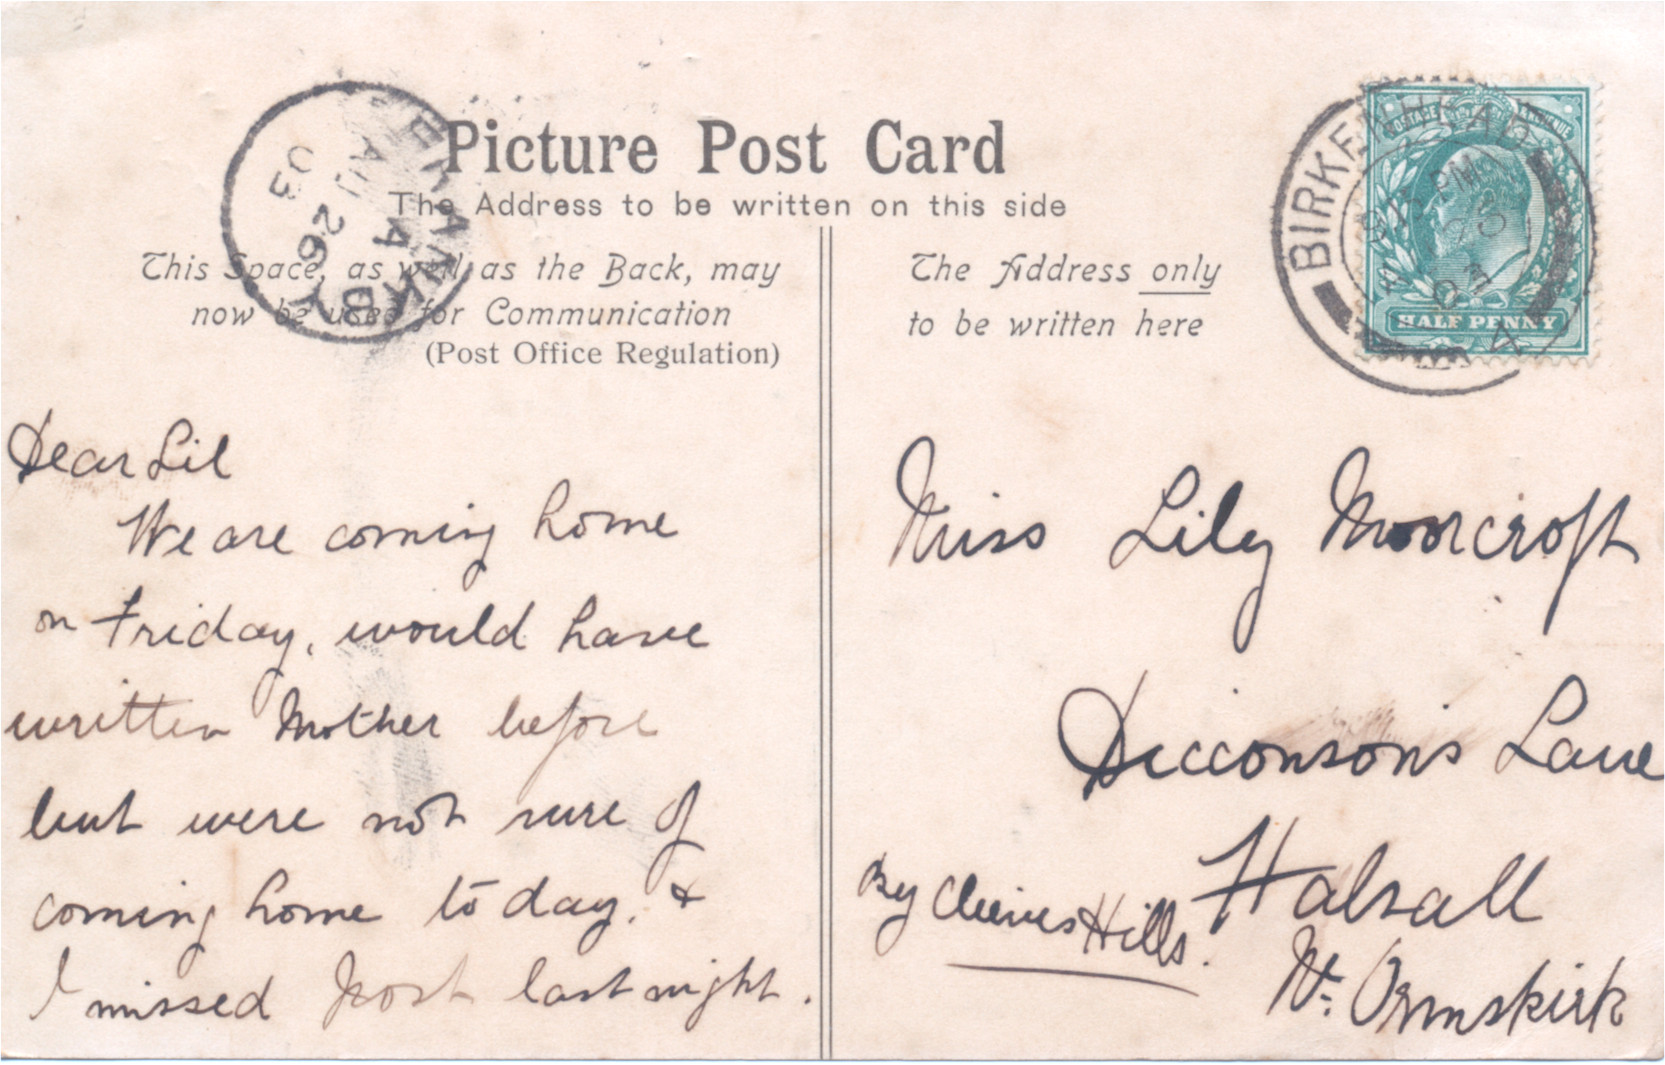 Picture Post Card
The Address to be written on this side
This Space, as well as the Back, may
now be used for Communication
(Post Office Regulation)
The Address only
to be written here
BIRKENHEAD
POSTAGE REVENUE
HALF PENNY
AU 26
03
Dear Lil
We are coming home
on Friday, would have
written Mother before
but were not sure of
coming home to day. &
I missed post last night.
Miss Lily Moorcroft
Dicconson's Lane
Halsall
By Hills.
Nr. Ormskirk